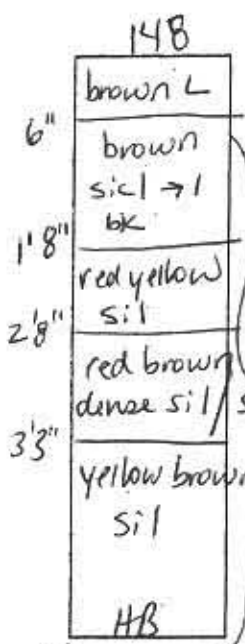 148
brown L
6"
brown
sicl → l
bk
1'8"
red yellow
sil
2'8"
red brown
dense sil
3'3"
yellow brown
sil
HB